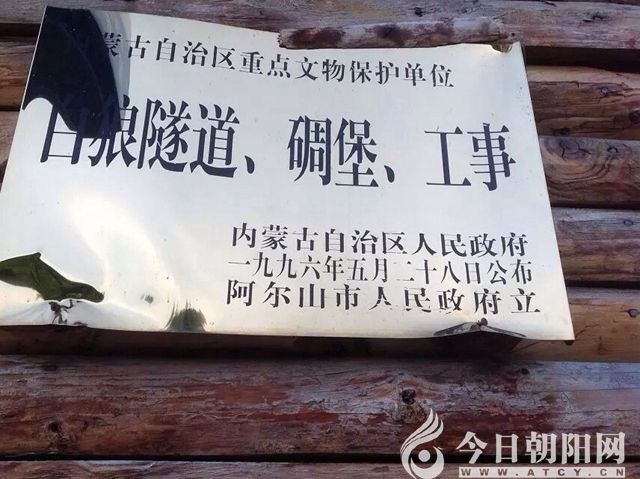 内蒙古自治区重点文物保护单位
白狼隧道、碉堡、工事
内蒙古自治区人民政府
一九九六年五月二十八日公布
阿尔山市人民政府立
今日朝阳网
WWW.ATCY.CN